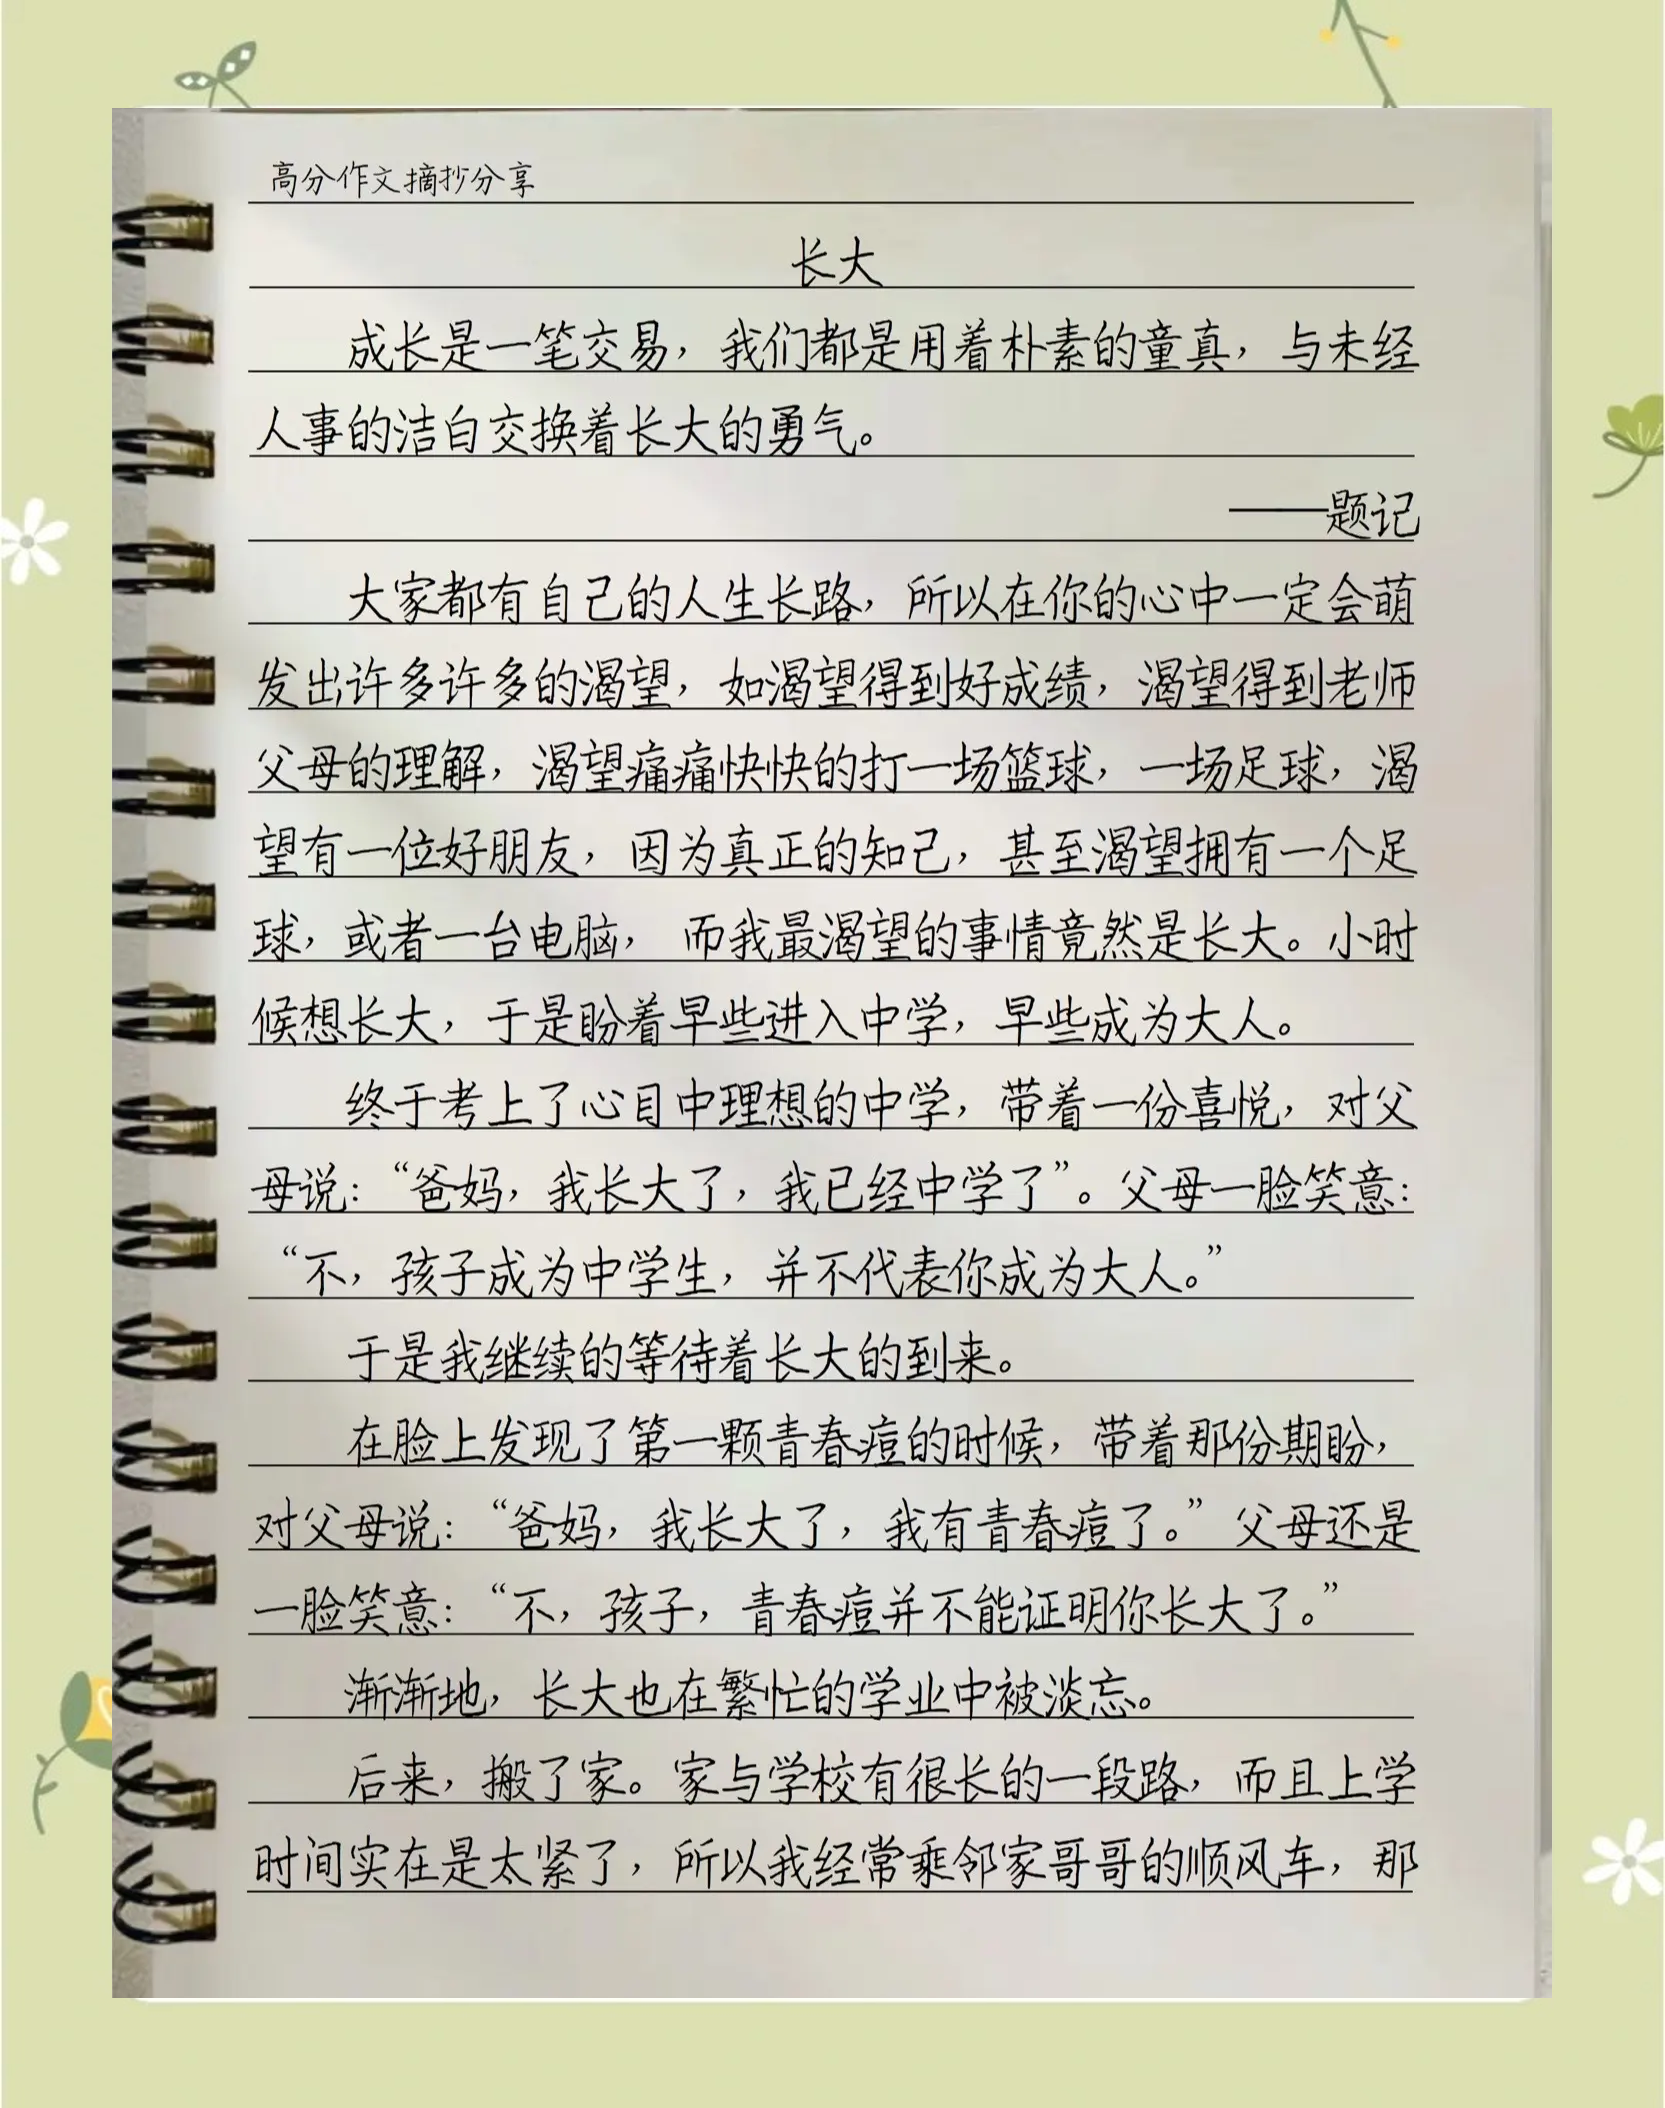 高分作文摘抄分享
长大
成长是一笔交易，我们都是用着朴素的童真，与未经
人事的洁白交换着长大的勇气。
——题记
大家都有自己的人生长路，所以在你的心中一定会萌
发出许多许多的渴望，如渴望得到好成绩，渴望得到老师
父母的理解，渴望痛痛快快的打一场篮球，一场足球，渴
望有一位好朋友，因为真正的知己，甚至渴望拥有一个足
球，或者一台电脑， 而我最渴望的事情竟然是长大。小时
候想长大，于是盼着早些进入中学，早些成为大人。
终于考上了心目中理想的中学，带着一份喜悦，对父
母说：“爸妈，我长大了，我已经中学了”。父母一脸笑意：
“不，孩子成为中学生，并不代表你成为大人。”
于是我继续的等待着长大的到来。
在脸上发现了第一颗青春痘的时候，带着那份期盼，
对父母说：“爸妈，我长大了，我有青春痘了。”父母还是
一脸笑意：“不，孩子，青春痘并不能证明你长大了。”
渐渐地，长大也在繁忙的学业中被淡忘。
后来，搬了家。家与学校有很长的一段路，而且上学
时间实在是太紧了，所以我经常乘邻家哥哥的顺风车，那